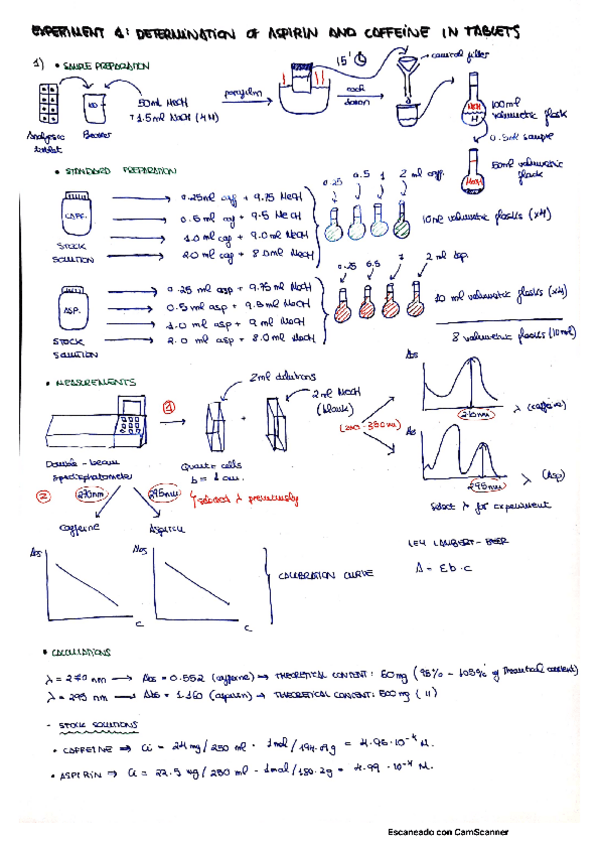 EXPERIMENT 1: DETERMINATION OF ASPIRIN AND CAFFEINE IN TABLETS
1) • SAMPLE PREPARATION
50ml MeOH
+ 1.5ml NaOH (4M)
Analgesic tablet
Beaker
parafilm
15'
each
conical filter
MeOH
100ml volumetric flask
0.5ml sample
50ml volumetric flask
MeOH
• STANDARD PREPARATION
CAFF.
STOCK SOLUTION
0.25ml caff + 9.75 MeOH
0.5 ml caff + 9.5 MeOH
1.0 ml caff + 9.0ml MeOH
2.0 ml caff + 8.0ml MeOH
0.25 0.5 1 2 ml caff.
10ml volumetric flasks (x4)
ASP.
STOCK SOLUTION
0.25 ml asp + 9.75 ml MeOH
0.5 ml asp + 9.5 ml MeOH
1.0 ml asp + 9 ml MeOH
2.0 ml asp + 8.0ml MeOH
0.25 0.5 1 2 ml Asp.
10 ml volumetric flasks (x4)
8 volumetric flasks (10ml)
• MEASUREMENTS
2ml dilutions
2ml MeOH (blank)
1
+
Double-beam spectrophotometer
Quartz cells
b = 1 cm.
(200-350nm)
Abs
270nm
λ (caffeine)
Abs
295nm
λ (Asp)
Select λ for experiment
2
270nm
295nm
selected λ previously
Caffeine
Aspirin
Abs
C
Abs
C
CALIBRATION CURVE
LEY LAMBERT-BEER
A = Ɛ·b·c
• CALCULATIONS
λ = 270 nm → Abs = 0.552 (caffeine) → THEORETICAL CONTENT: 50mg (95% - 105% of theoretical content)
λ = 295 nm → Abs = 1.160 (aspirin) → THEORETICAL CONTENT: 500mg (")
- STOCK SOLUTIONS
• CAFFEINE ⇒ Ci = 24mg/250 ml · 1mol/194.09g = 4.95·10⁻⁴ M.
• ASPIRIN ⇒ Ci = 22.5 mg/250 ml · 1mol/180.2g = 4.99·10⁻⁴ M.
Escaneado con CamScanner